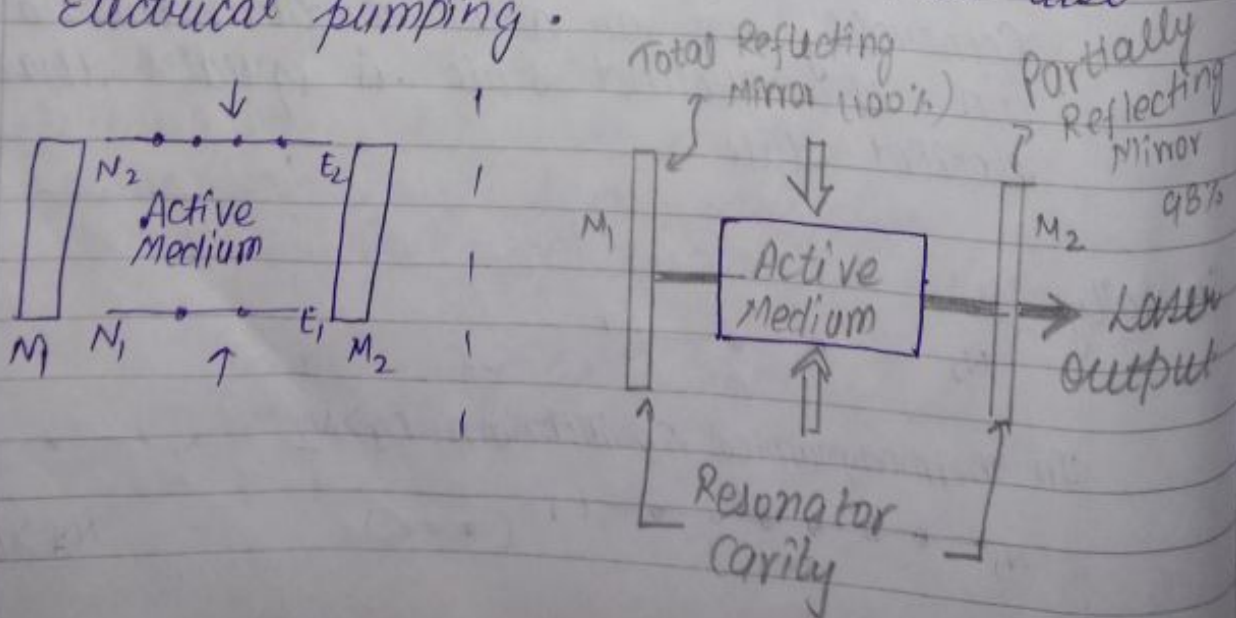 Electrical pumping.
N2
E2
Active
Medium
N1
E1
M1
M2
Total Reflecting
Mirror (100%)
Partially
Reflecting
Mirror
98%
M1
M2
Active
Medium
Laser
output
Resonator
Cavity